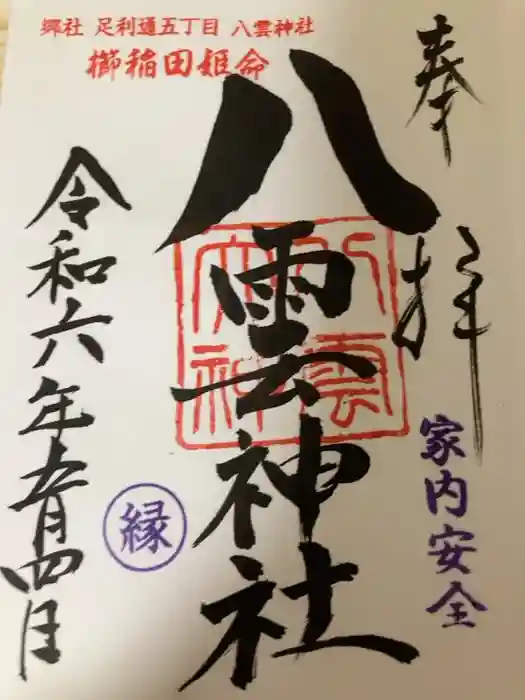 郷社 足利通五丁目 八雲神社
櫛稲田姫命
奉拝
家内安全
八雲神社
縁
令和六年五月四日